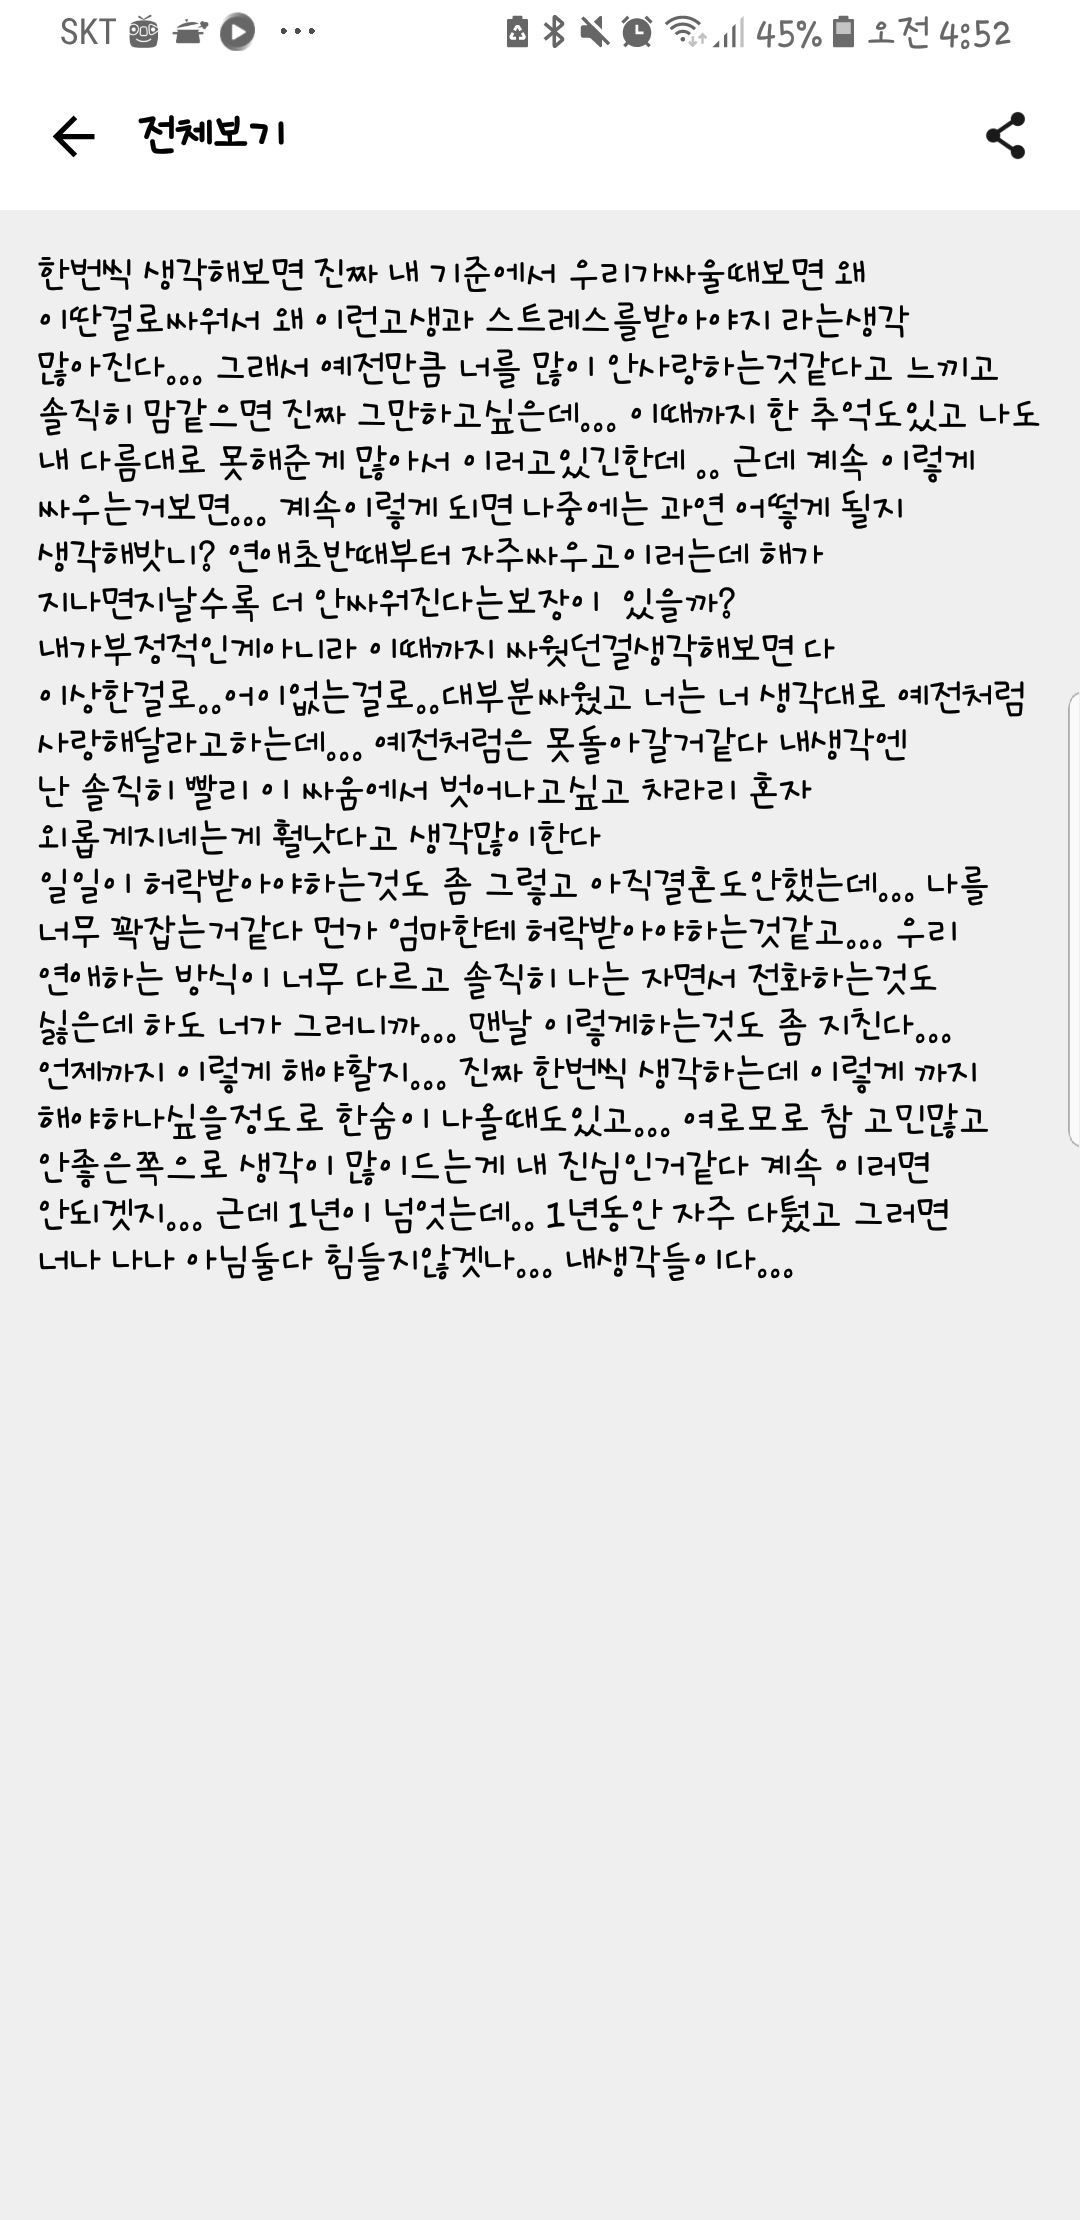 SKT ... 45% 오전 4:52
전체보기
한번씩 생각해보면 진짜 내 기준에서 우리가싸울때보면 왜
이딴걸로싸워서 왜 이런고생과 스트레스를받아야지 라는생각
많아진다... 그래서 예전만큼 너를 많이 안사랑하는것같다고 느끼고
솔직히 맘같으면 진짜 그만하고싶은데... 이때까지 한 추억도있고 나도
내 다름대로 못해준게 많아서 이러고있긴한데 .. 근데 계속 이렇게
싸우는거보면... 계속이렇게 되면 나중에는 과연 어떻게 될지
생각해밧니? 연애초반때부터 자주싸우고이러는데 해가
지나면지날수록 더 안싸워진다는보장이 있을까?
내가부정적인게아니라 이때까지 싸웟던걸생각해보면 다
이상한걸로..어이없는걸로..대부분싸웠고 너는 너 생각대로 예전처럼
사랑해달라고하는데... 예전처럼은 못돌아갈거같다 내생각엔
난 솔직히 빨리 이 싸움에서 벗어나고싶고 차라리 혼자
외롭게지네는게 훨낫다고 생각많이한다
일일이 허락받아야하는것도 좀 그렇고 아직결혼도안했는데... 나를
너무 꽉잡는거같다 먼가 엄마한테 허락받아야하는것같고... 우리
연애하는 방식이 너무 다르고 솔직히 나는 자면서 전화하는것도
싫은데 하도 너가 그러니까... 맨날 이렇게하는것도 좀 지친다...
언제까지 이렇게 해야할지... 진짜 한번씩 생각하는데 이렇게 까지
해야하나싶을정도로 한숨이 나올때도있고... 여로모로 참 고민많고
안좋은쪽으로 생각이 많이드는게 내 진심인거같다 계속 이러면
안되겟지... 근데 1년이 넘엇는데.. 1년동안 자주 다퉜고 그러면
너나 나나 아님둘다 힘들지않겟나... 내생각들이다...